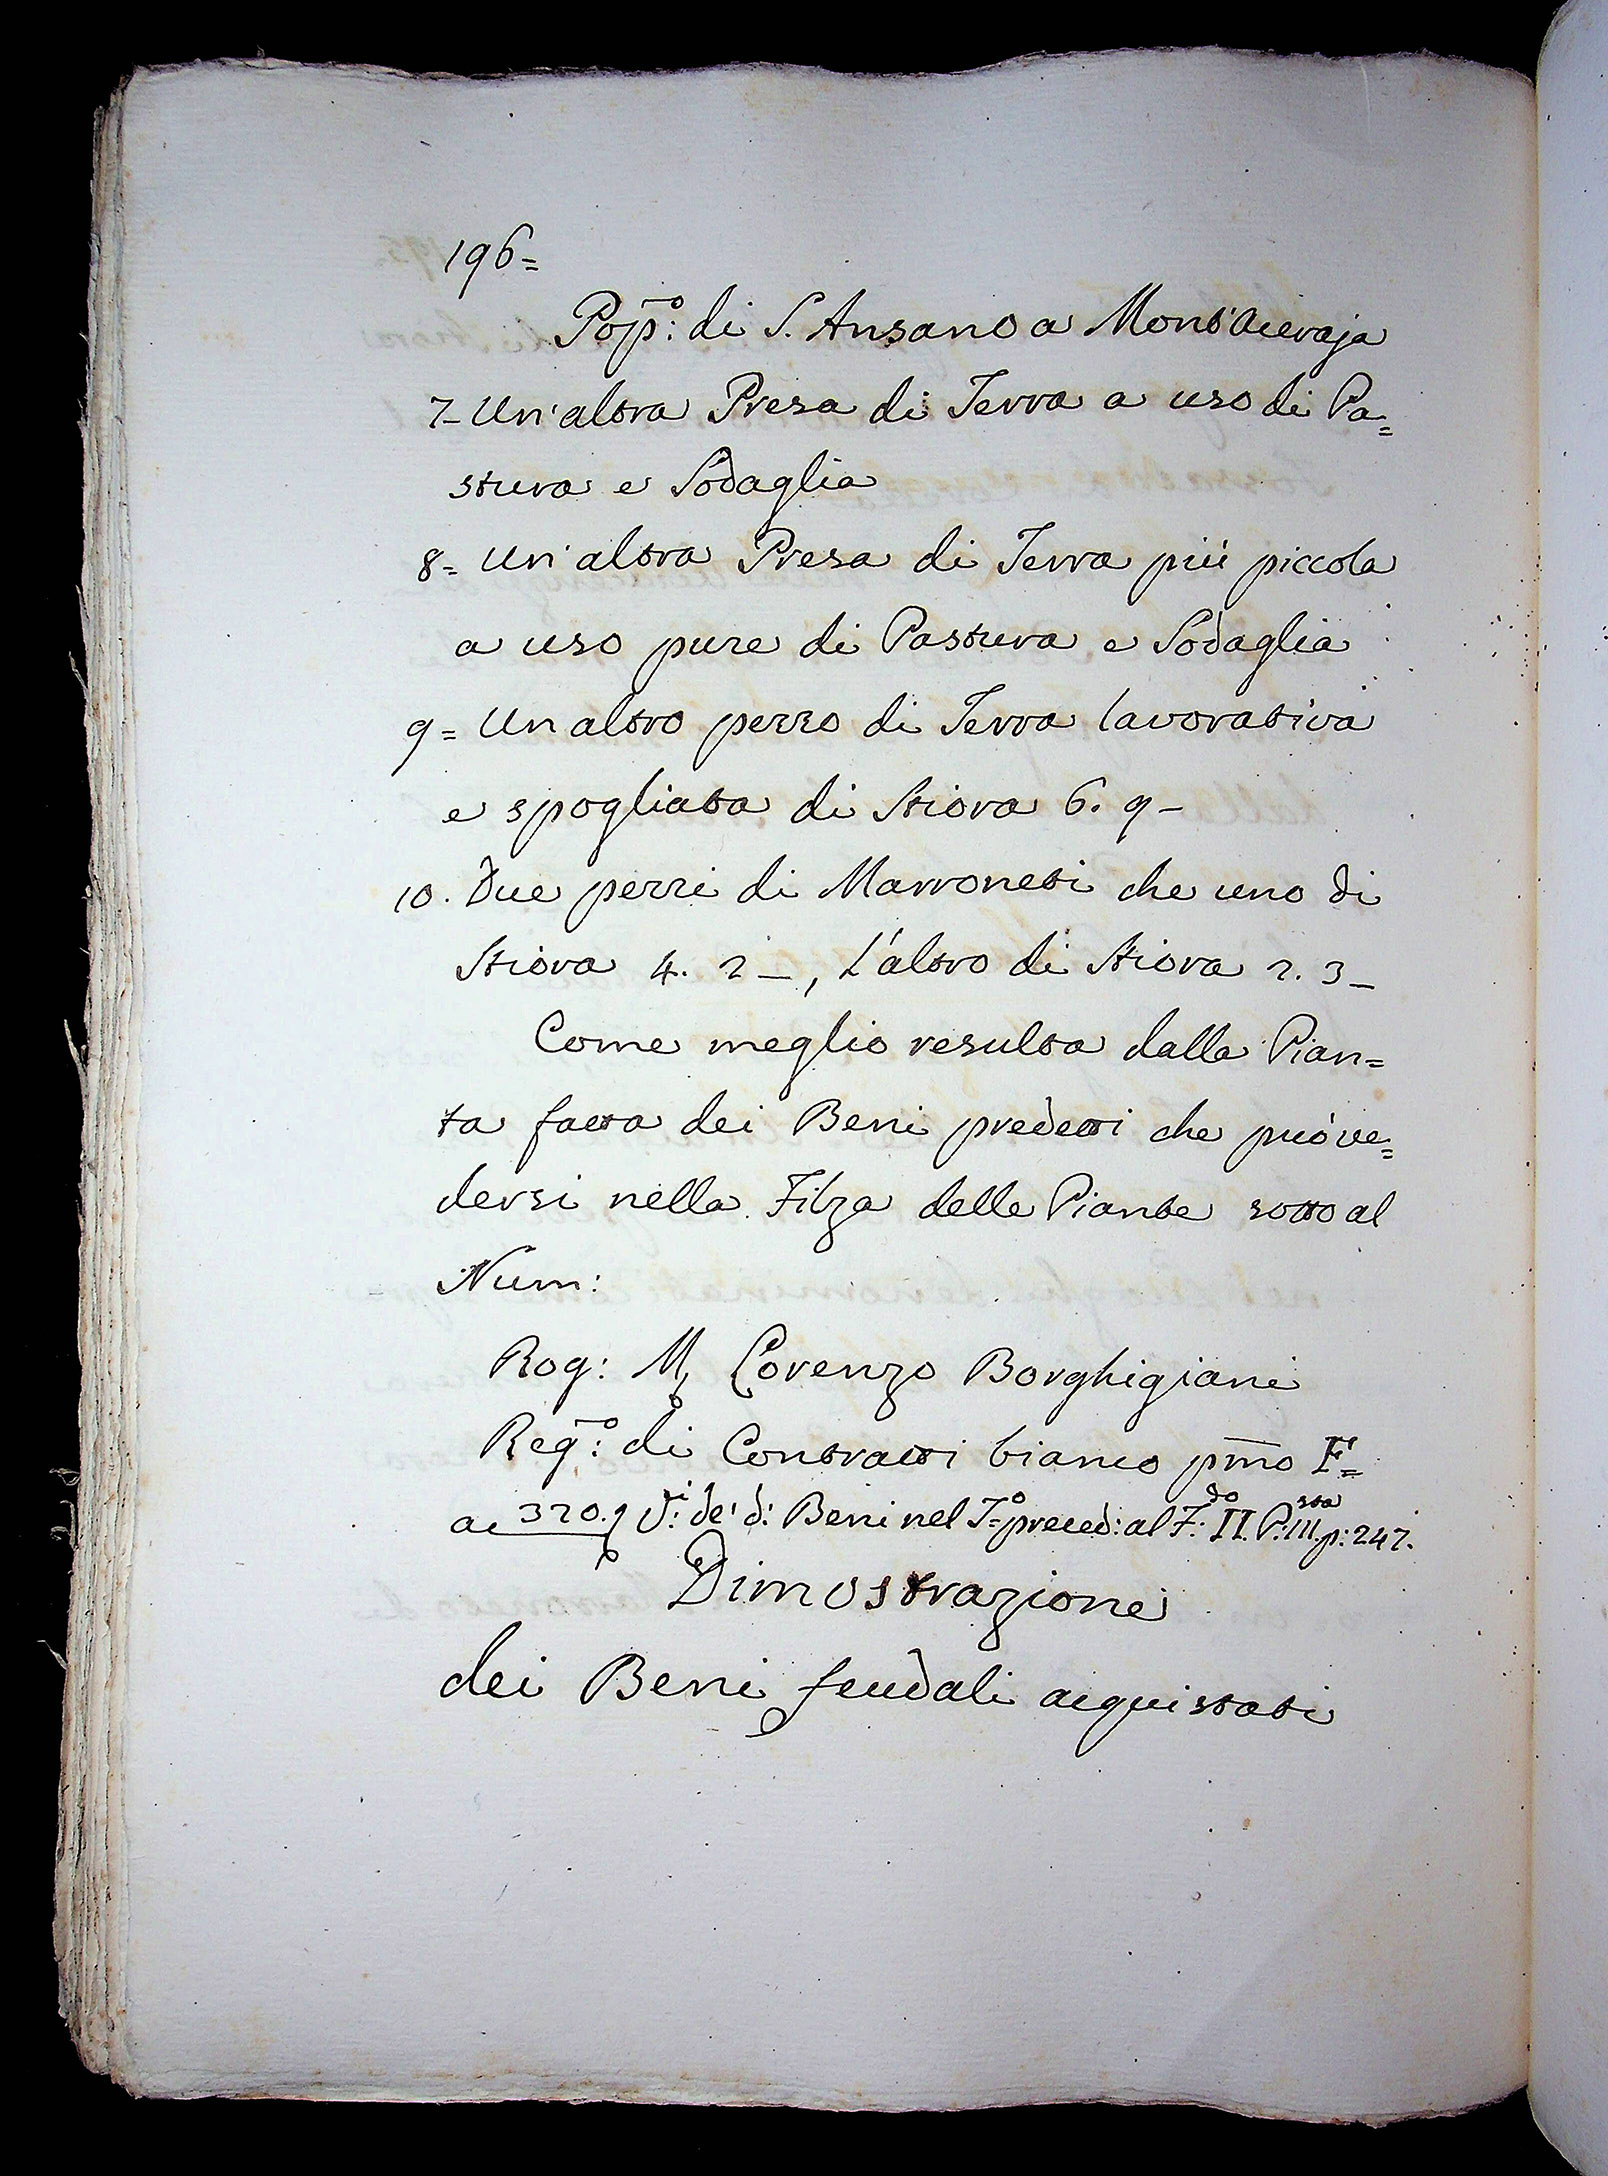 196=
Pop:º di S. Ansano a Mont'Aceraja
7- Un'altra Presa di Terra a uso di Pa=
stura e Sodaglia
8= Un'altra Presa di Terra più piccola
a uso pure di Pastura e Sodaglia
9= Un altro pezzo di Terra lavorativa
e spogliata di Stiora 6. 9-
10. Due pezzi di Marroneti che uno di
Stiora 4. 2-, L'altro di Stiora 2. 3-
Come meglio resulta dalla Pian=
ta fatta dei Beni predetti che può ve=
dersi nella Filza delle Piante sotto al
Num:
Rog: M, Lorenzo Borghigiani
Reg:º di Contratti bianco pm̄o F=
ac 320. V: de' d:i Beni nel T:º preced: al F:do II. P:III. p: 247.
Dimostrazione
dei Beni feudali acquistati